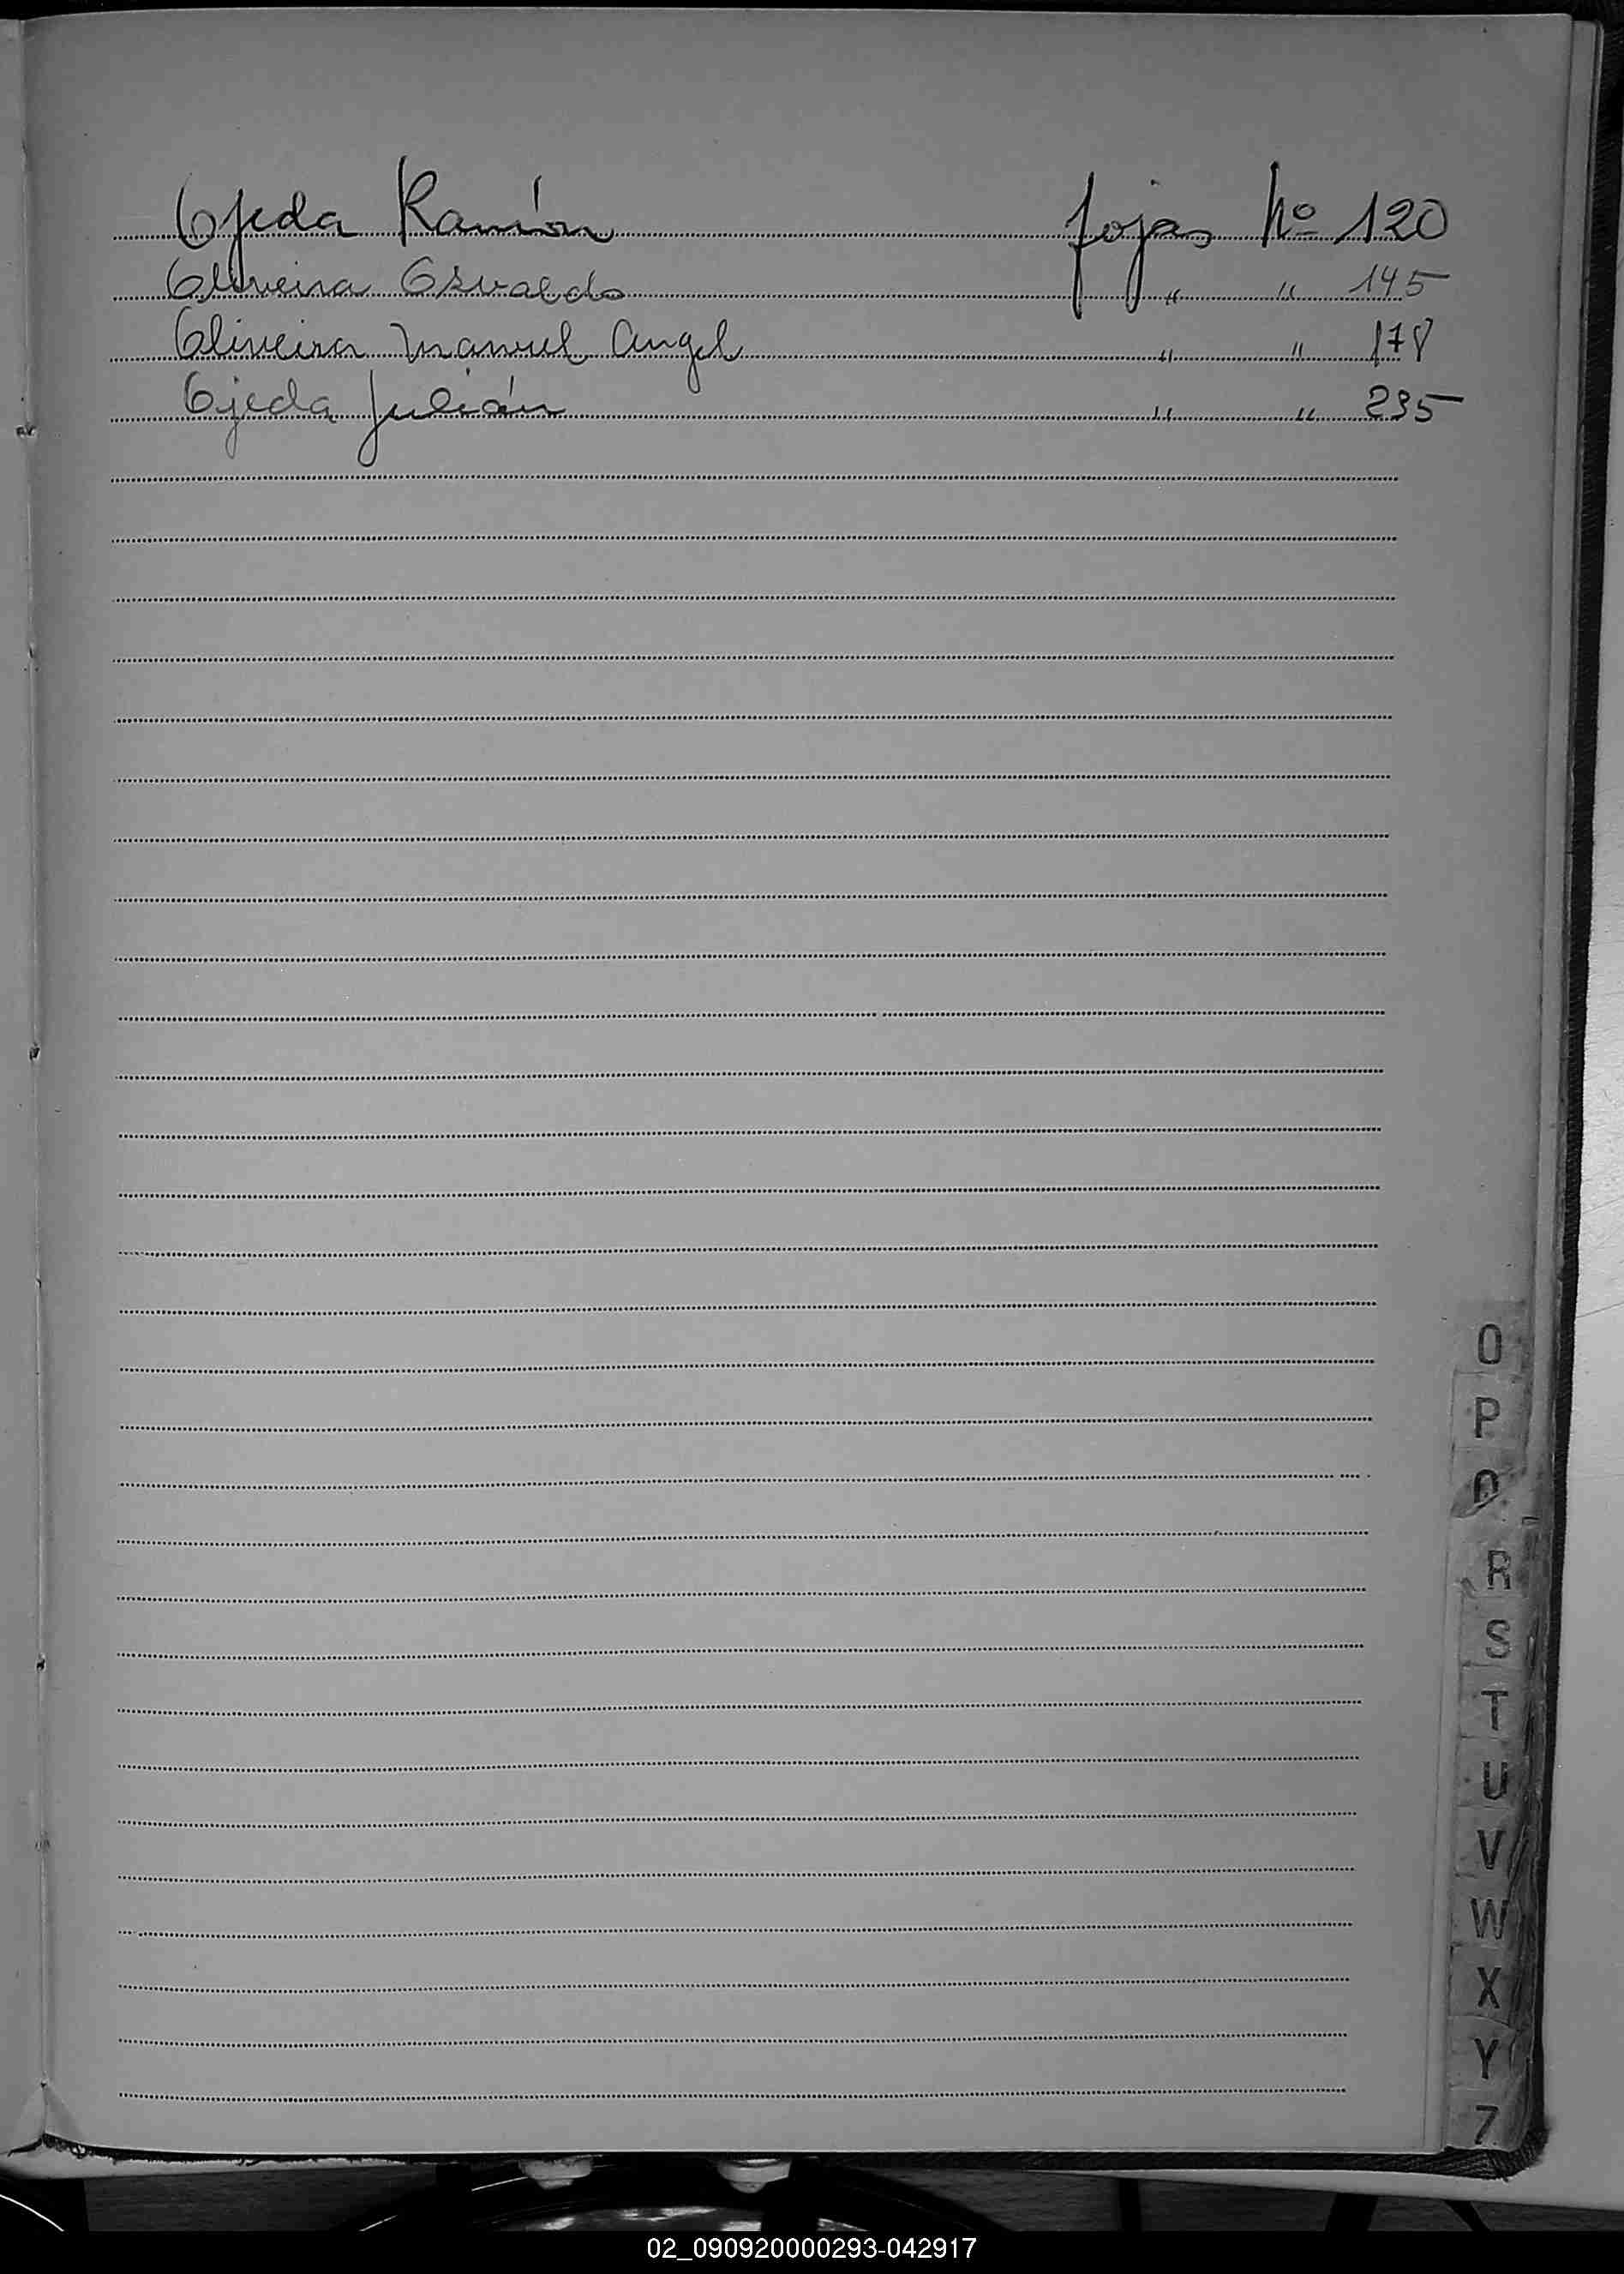 Ojeda Ramón fojas Nº 120
Oliveira Osvaldo " " 145
Oliveira Manuel Angel " " 178
Ojeda Julián " " 235
O
P
Q
R
S
T
U
V
W
X
Y
Z
02_090920000293-042917